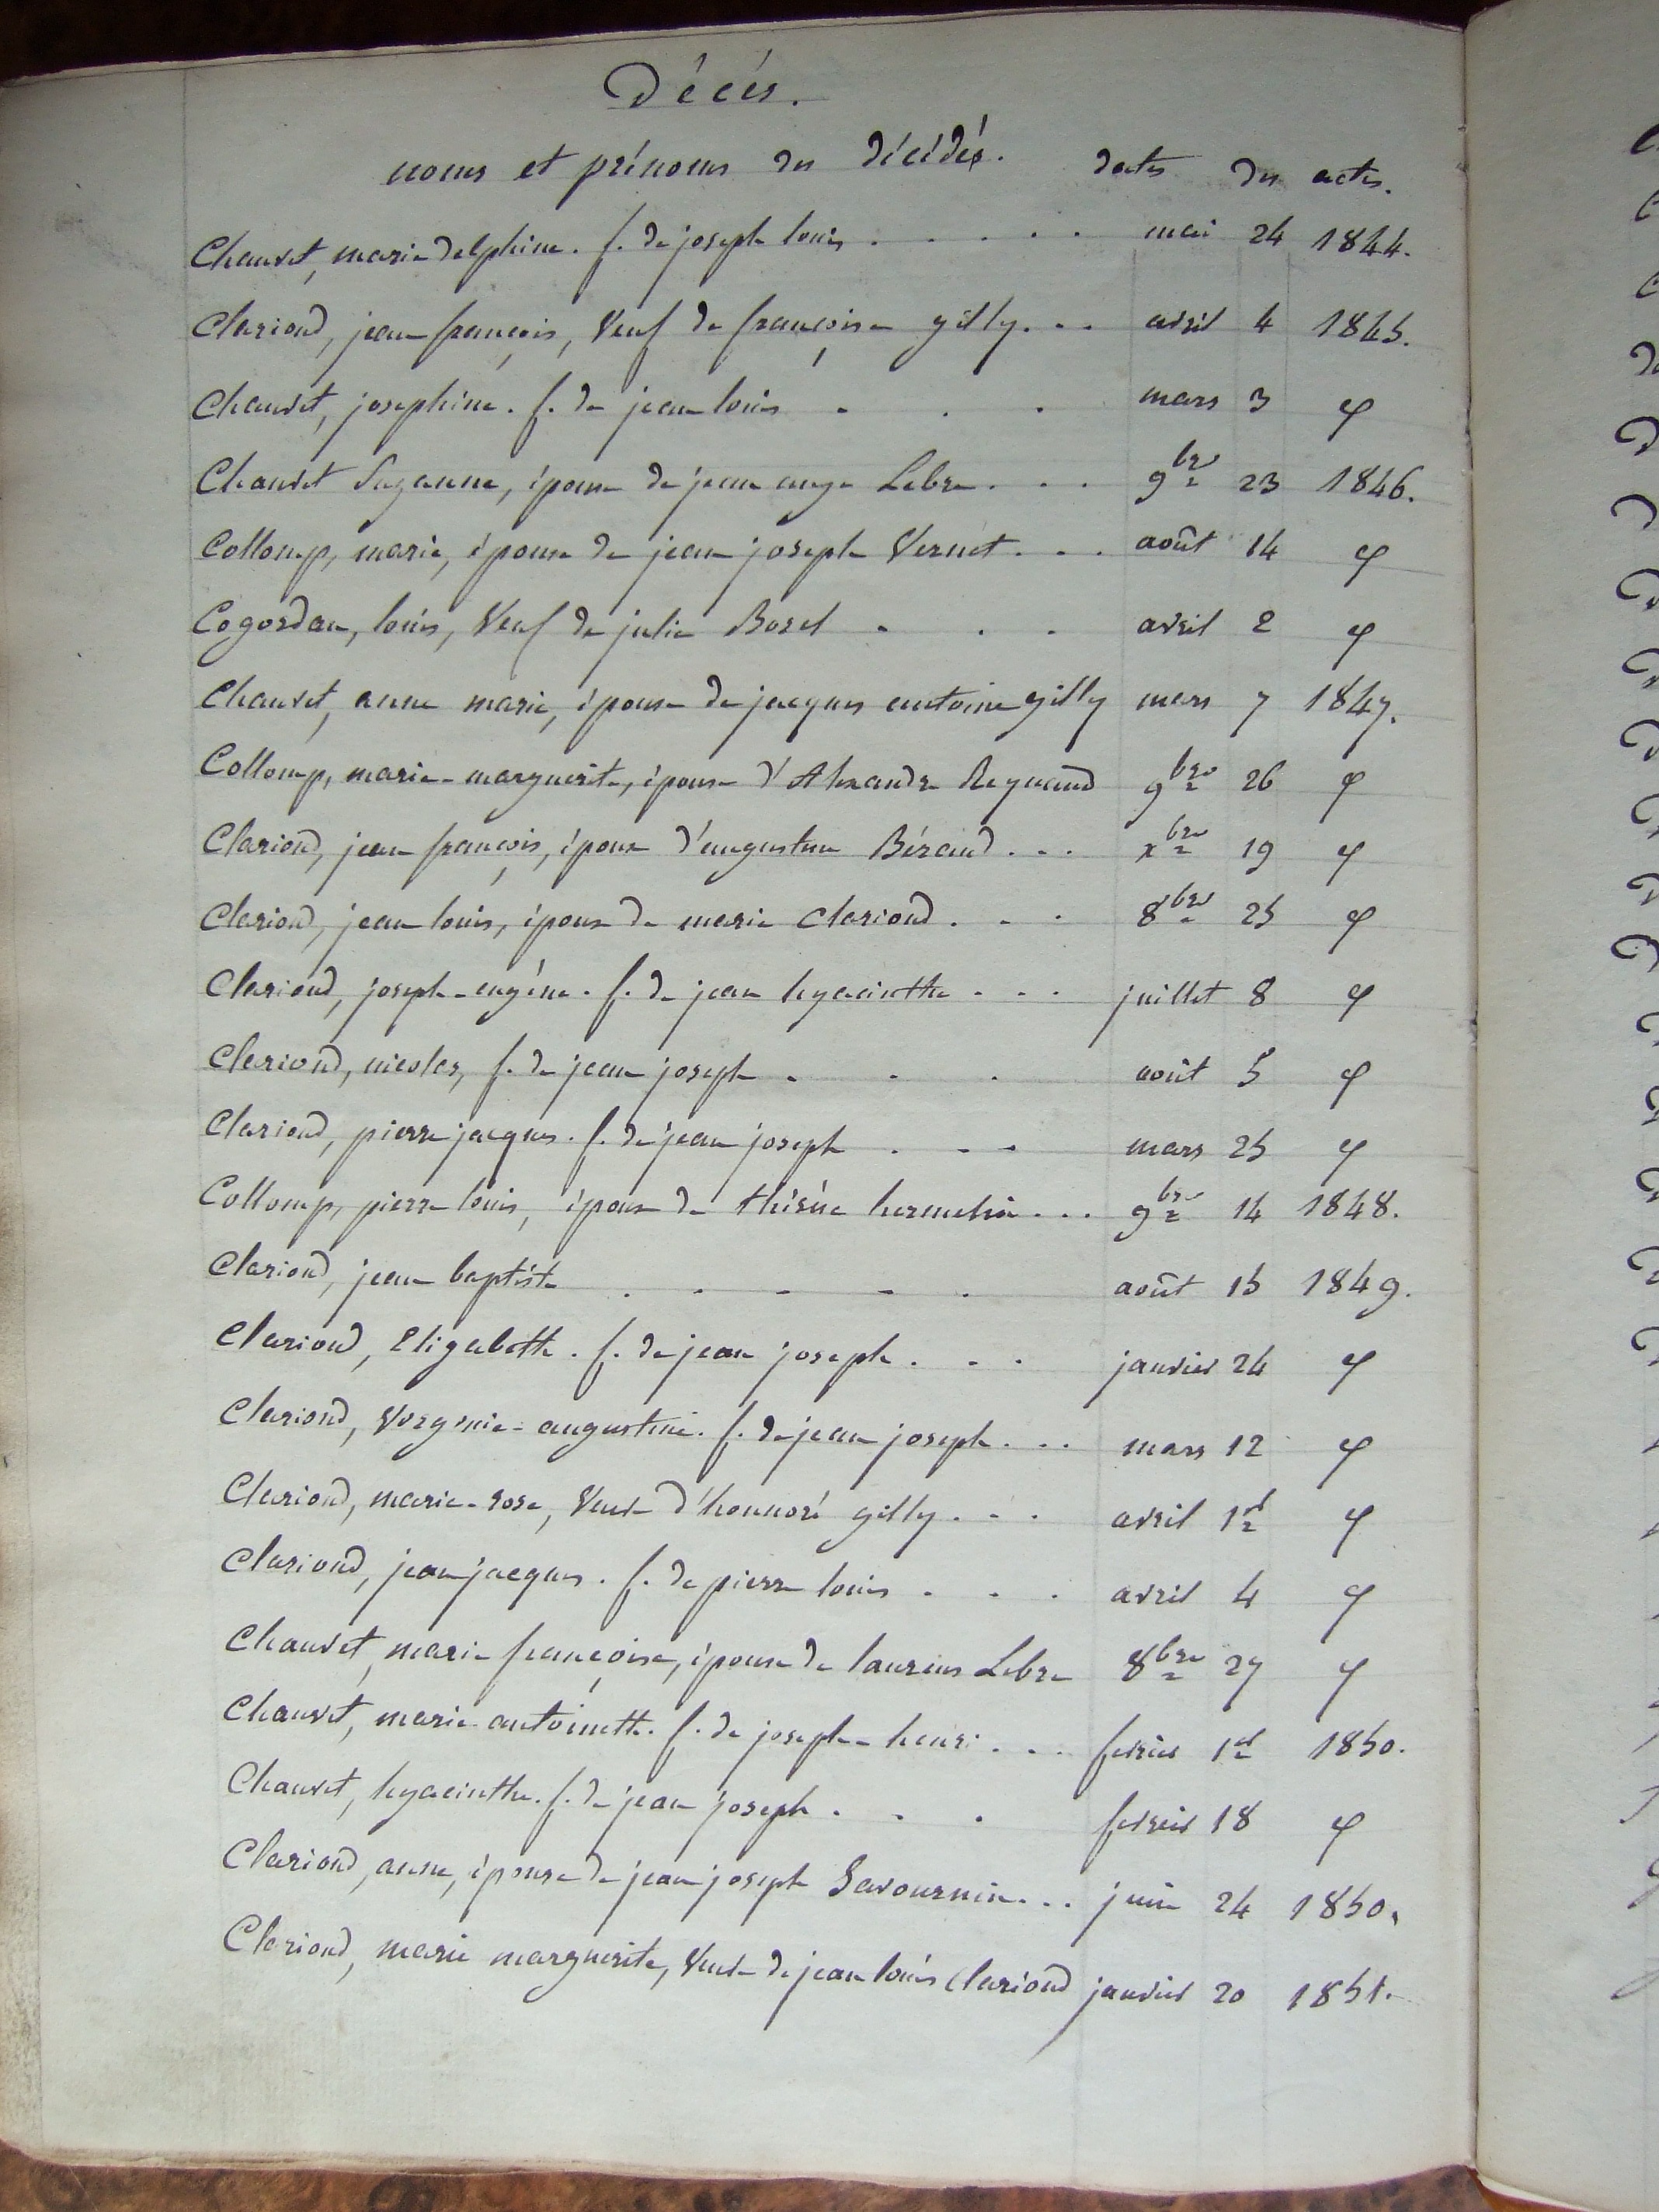 Décés.
noms et prénoms des décédés. dates des actes.
Chauvet, marie delphine. f. de joseph louis . . . . . mai 24 1844.
Clariond, jean françois, Veuf de françoise gilly. . . avril 4 1845.
Chauvet, josephine. f. de jean louis . . . mars 3 φ
Chauvet Suzanne, épouse de jean ange Lebre . . . 9bre 23 1846.
Collomp, marie, épouse de jean joseph Vernet . . . août 14 φ
Cogordan, louis, Veuf de julie Borel . . . avril 2 φ
Chauvet, anne marie, épouse de jacques antoine gilly mars 7 1847.
Collomp, marie-marguerite, épouse d'Alexandre Reynaud 9bre 26 φ
Clariond, jean françois, époux d'augustine Béraud . . . xbre 19 φ
Clariond, jean louis, époux de marie Clariond . . . 8bre 25 φ
Clariond, joseph-eugéne. f. de jean hyacinthe . . . juillet 8 φ
Clariond, nicolas, f. de jean joseph . . . août 5 φ
Clariond, pierre jacques. f. de jean joseph . . . mars 25 φ
Collomp, pierre louis, époux de thérése hermelin . . . 9bre 14 1848.
Clariond, jean baptiste . . . . . août 15 1849.
Clariond, Elizabeth. f. de jean joseph . . . janvier 24 φ
Clariond, Virginie-augustine. f. de jean joseph . . . mars 12 φ
Clariond, marie-rose, Veuve d'honnoré gilly . . . avril 1er φ
Clariond, jean jacques. f. de pierre louis . . . avril 4 φ
Chauvet, marie françoise, épouse de laurens Lebre 8bre 27 φ
Chauvet, marie antoinette. f. de joseph-henri . . . fevrier 1er 1850.
Chauvet, hyacinthe. f. de jean joseph . . . fevrier 18 φ
Clariond, anne, épouse de jean joseph Savournin . . . juin 24 1850.
Clariond, marie marguerite, Veuve de jean louis Clariond janvier 20 1851.